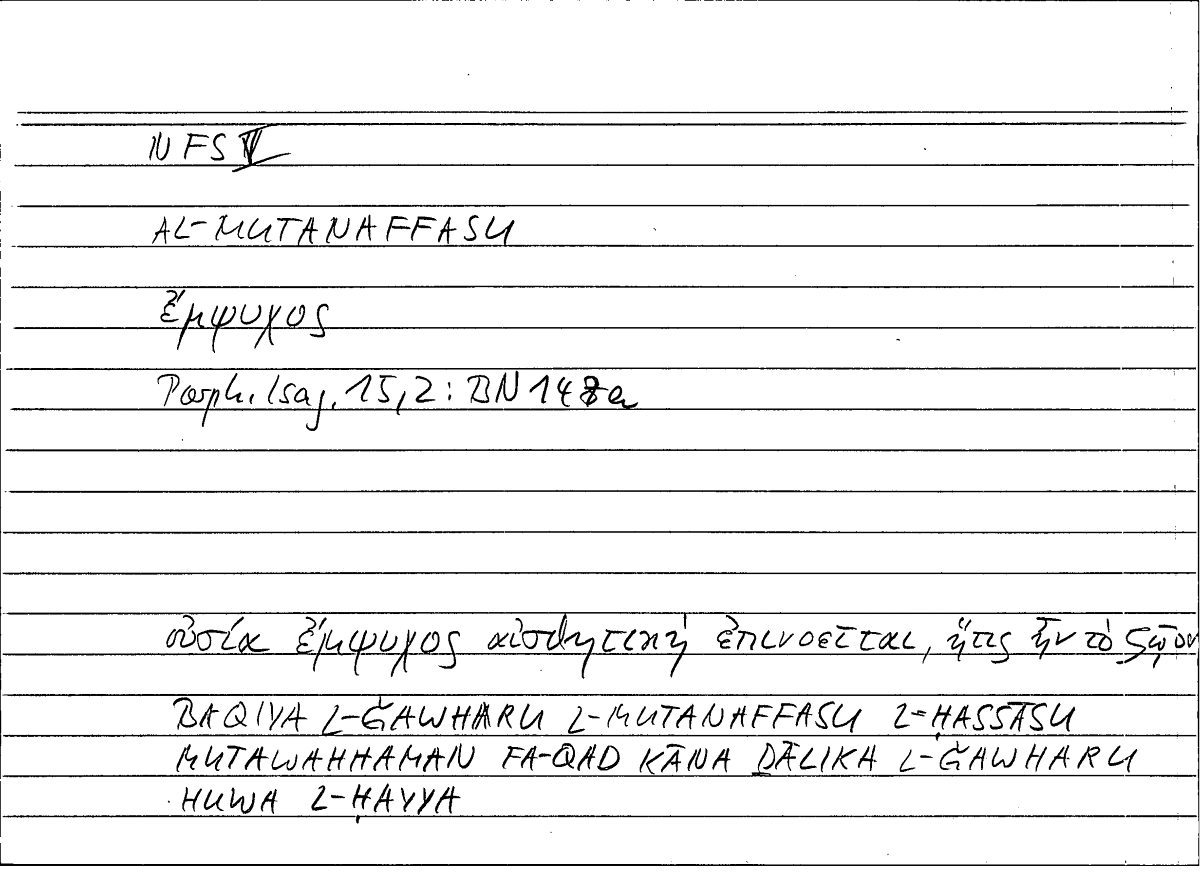 NFS V
AL-MUTANAFFASU
ἔμψυχος
Porph. Isag. 15,2: BN 148a
οὐσία ἔμψυχος αἰσθητικὴ ἐπινοεῖται, ἥτις ἦν τὸ ζῷον
BAQIYA L-ǦAWHARU L-MUTANAFFASU L-ḤASSĀSU
MUTAWAHHAMAN FA-QAD KĀNA ḎĀLIKA L-ǦAWHARU
HUWA L-ḤAYYA